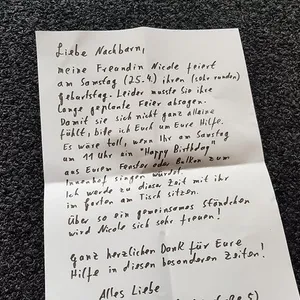 Liebe Nachbarn,
meine Freundin Nicole feiert
am Samstag (25.4.) ihren (sehr runden)
Geburtstag. Leider musste sie ihre
lange geplante Feier absagen.
Damit sie sich nicht ganz alleine
fühlt, bitte ich Euch um Eure Hilfe.
Es wäre toll, wenn Ihr am Samstag
um 11 Uhr ein "Happy Birthday"
aus Eurem Fenster oder Balkon zum
Innenhof singen würdet.
Ich werde zu dieser Zeit mit ihr
im Garten am Tisch sitzen.
Über so ein gemeinsames Ständchen
wird Nicole sich sehr freuen!
Ganz herzlichen Dank für Eure
Hilfe in diesen besonderen Zeiten!
Alles Liebe